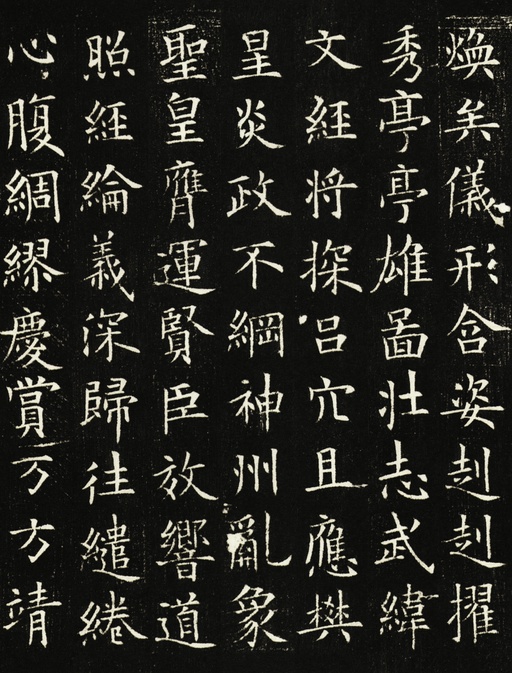 煥矣儀形含姿赳赳擢
秀亭亭雄啚壮志武緯
文經将探呂穴且應樊
星炎政不綱神州亂象
聖皇膺運賢臣放響道
照經綸義深歸往繾綣
心腹綢繆慶賞万方靖